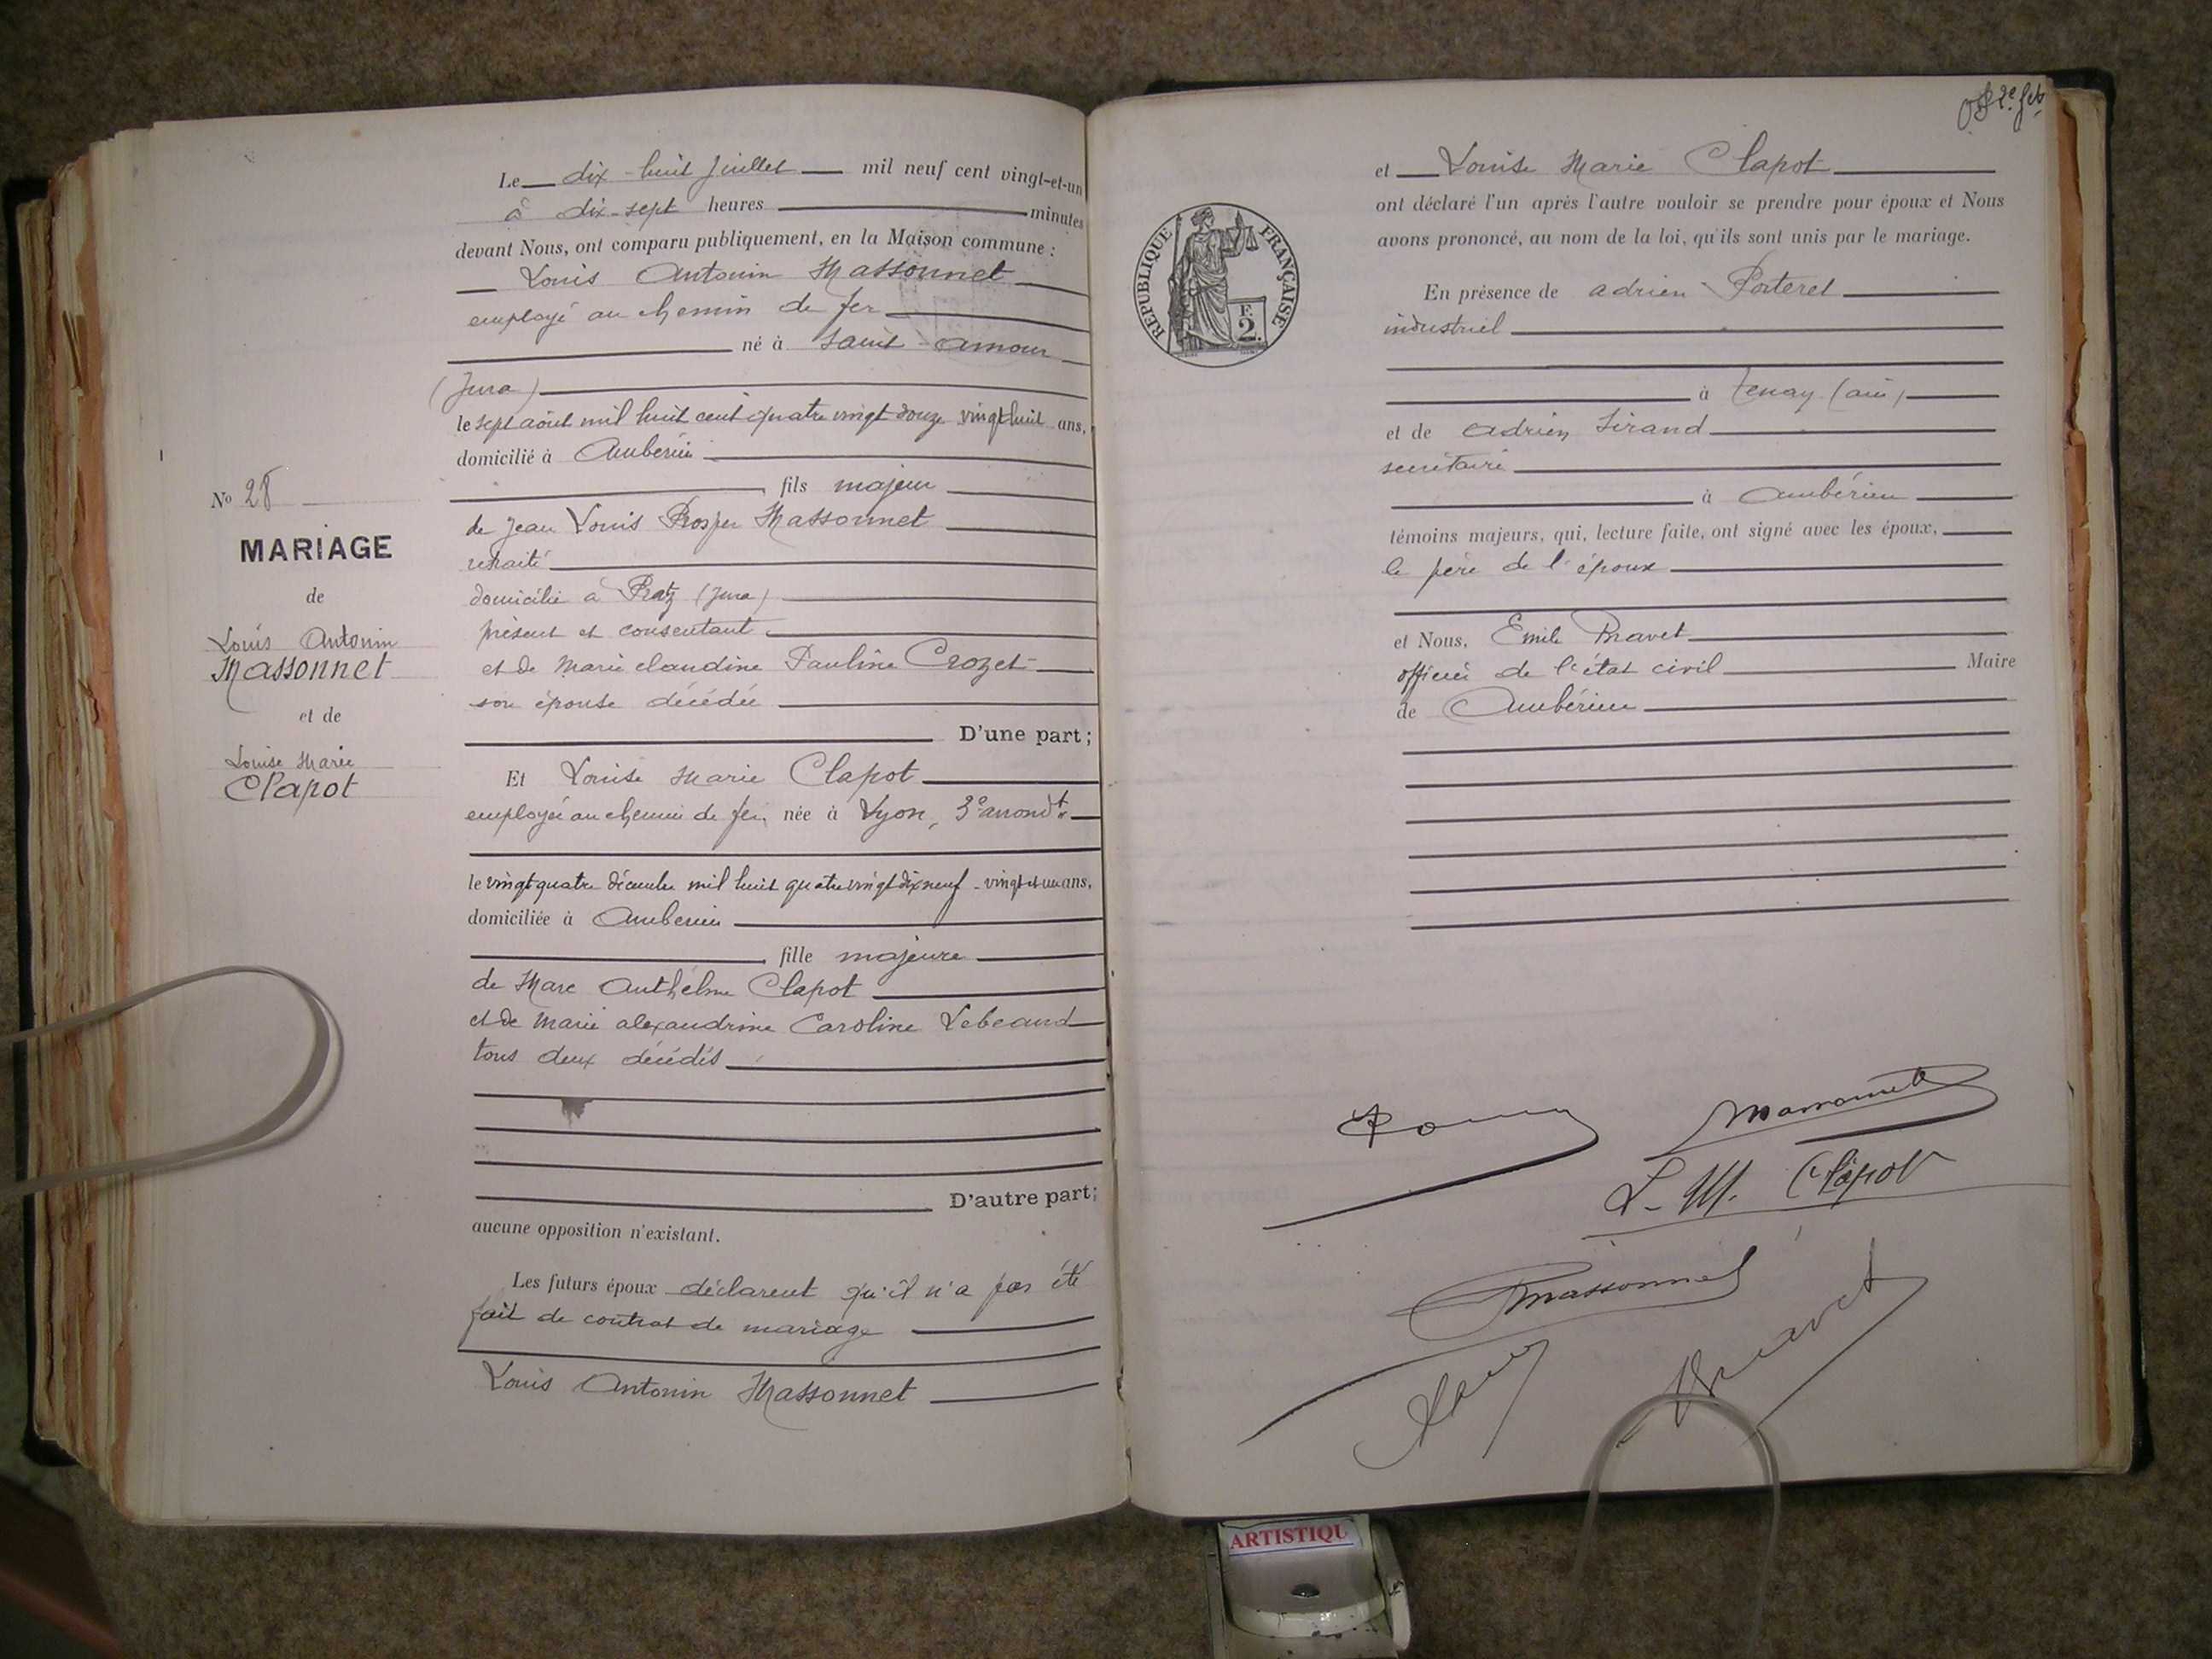 Le dix-huit Juillet mil neuf cent vingt-et-un
à dix-sept heures minutes
devant Nous, ont comparu publiquement, en la Maison commune :
Louis Antonin Massonnet
employé au chemin de fer
né à Saint-amour
(Jura)
le sept août mil huit cent quatre vingt douze vingt huit ans,
domicilié à Ambérieu
fils majeur
de Jean Louis Prosper Massonnet
retraité
domicilié à Pratz (Jura)
présent et consentant
et de Marie claudine Pauline Crozet
son épouse décédée
D'une part;
Et Louise Marie Clapot
employée au chemin de fer, née à Lyon, 3e arrondt
le vingt quatre décembre mil huit quatre vingt dix neuf - vingt et un ans,
domiciliée à Ambérieu
fille majeure
de Marc Anthelme Clapot
et de Marie alexandrine Caroline Lebeaud
tous deux décédés
D'autre part;
aucune opposition n'existant.
Les futurs époux déclarent qu'il n'a pas été
fait de contrat de mariage
Louis Antonin Massonnet
No 28
MARIAGE
de
Louis Antonin
Massonnet
et de
Louise Marie
Clapot
2e
RÉPUBLIQUE FRANÇAISE
F.
2.
et Louise Marie Clapot
ont déclaré l'un après l'autre vouloir se prendre pour époux et Nous
avons prononcé, au nom de la loi, qu'ils sont unis par le mariage.
En présence de adrien Porteret
industriel
à Tenay (ain)
et de adrien Sirand
secrétaire
à Ambérieu
témoins majeurs, qui, lecture faite, ont signé avec les époux,
le père de l'époux
et Nous, Emile Pravet
officier de l'état civil Maire
de Ambérieu
Massonnet
L. M. Clapot
Massonnet
Pravet
ARTISTIQU